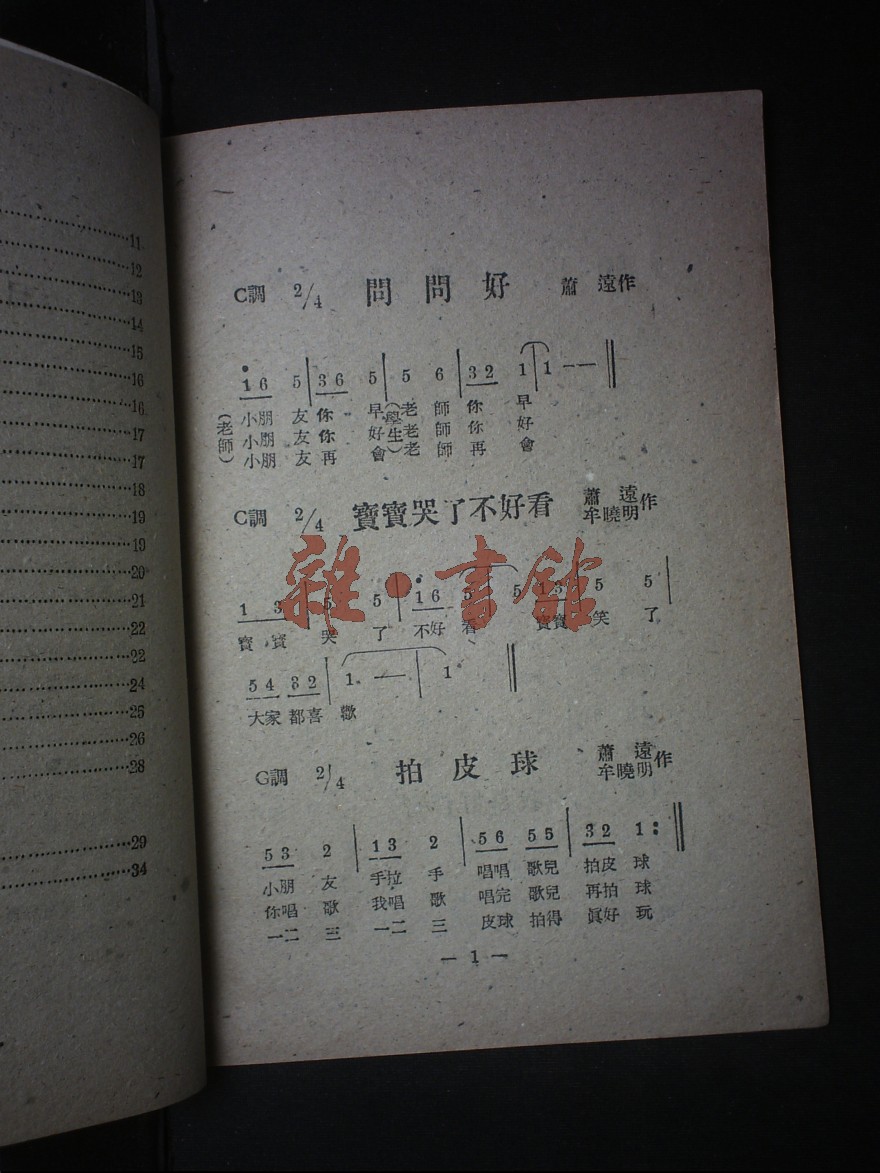 11
12
13
14
15
16
16
17
17
18
19
19
20
21
22
22
24
25
26
28
29
34
C調 2/4 問問好 蕭遠作
1 6 5 | 3 6 5 | 5 6 | 3 2 1 | 1 — —
(老師) 小朋友你早 (學生) 老師你早
小朋友你好 老師你好
小朋友再會 老師再會
C調 2/4 寶寶哭了不好看 蕭遠 牟曉明作
1 3 5 5 | 1 6 5 5 | 1 3 5 5 |
寶寶哭了不好看 寶寶笑了
5 4 3 2 | 1. — | 1.
大家都喜歡
G調 2/4 拍皮球 蕭遠 牟曉明作
5 3 2 | 1 3 2 | 5 6 5 5 | 3 2 1 :
小朋友 手拉手 唱唱歌兒拍皮球
你唱歌 我唱歌 唱完歌兒再拍球
一二三 一二三 皮球拍得眞好玩
— 1 —
雜·書館